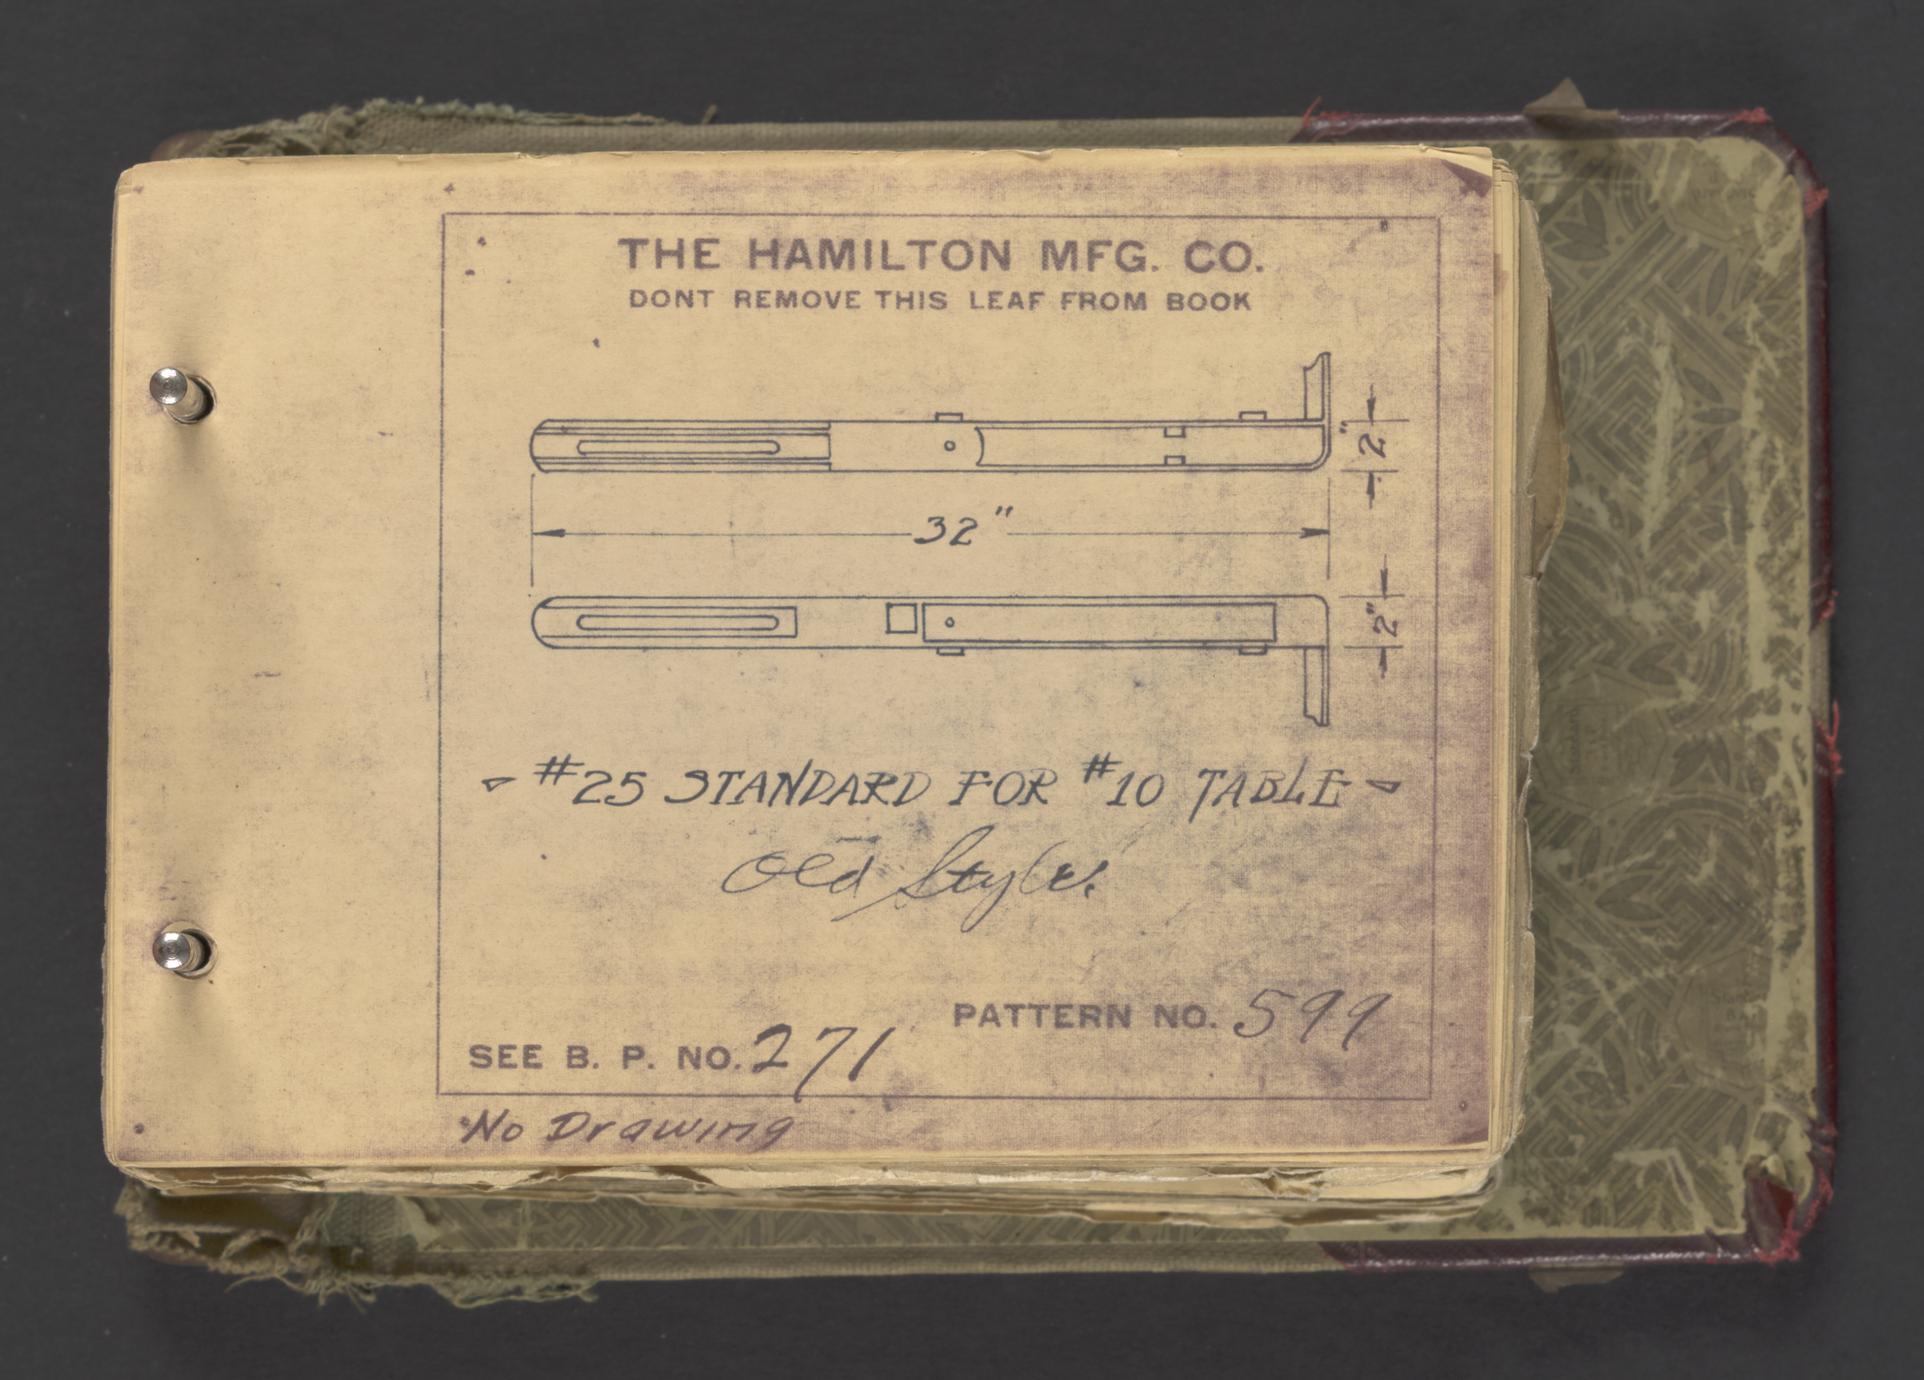 THE HAMILTON MFG. CO.
DONT REMOVE THIS LEAF FROM BOOK
2"
32"
2"
#25 STANDARD FOR #10 TABLE
Old Style.
PATTERN NO. 599
SEE B. P. NO. 271
No Drawing